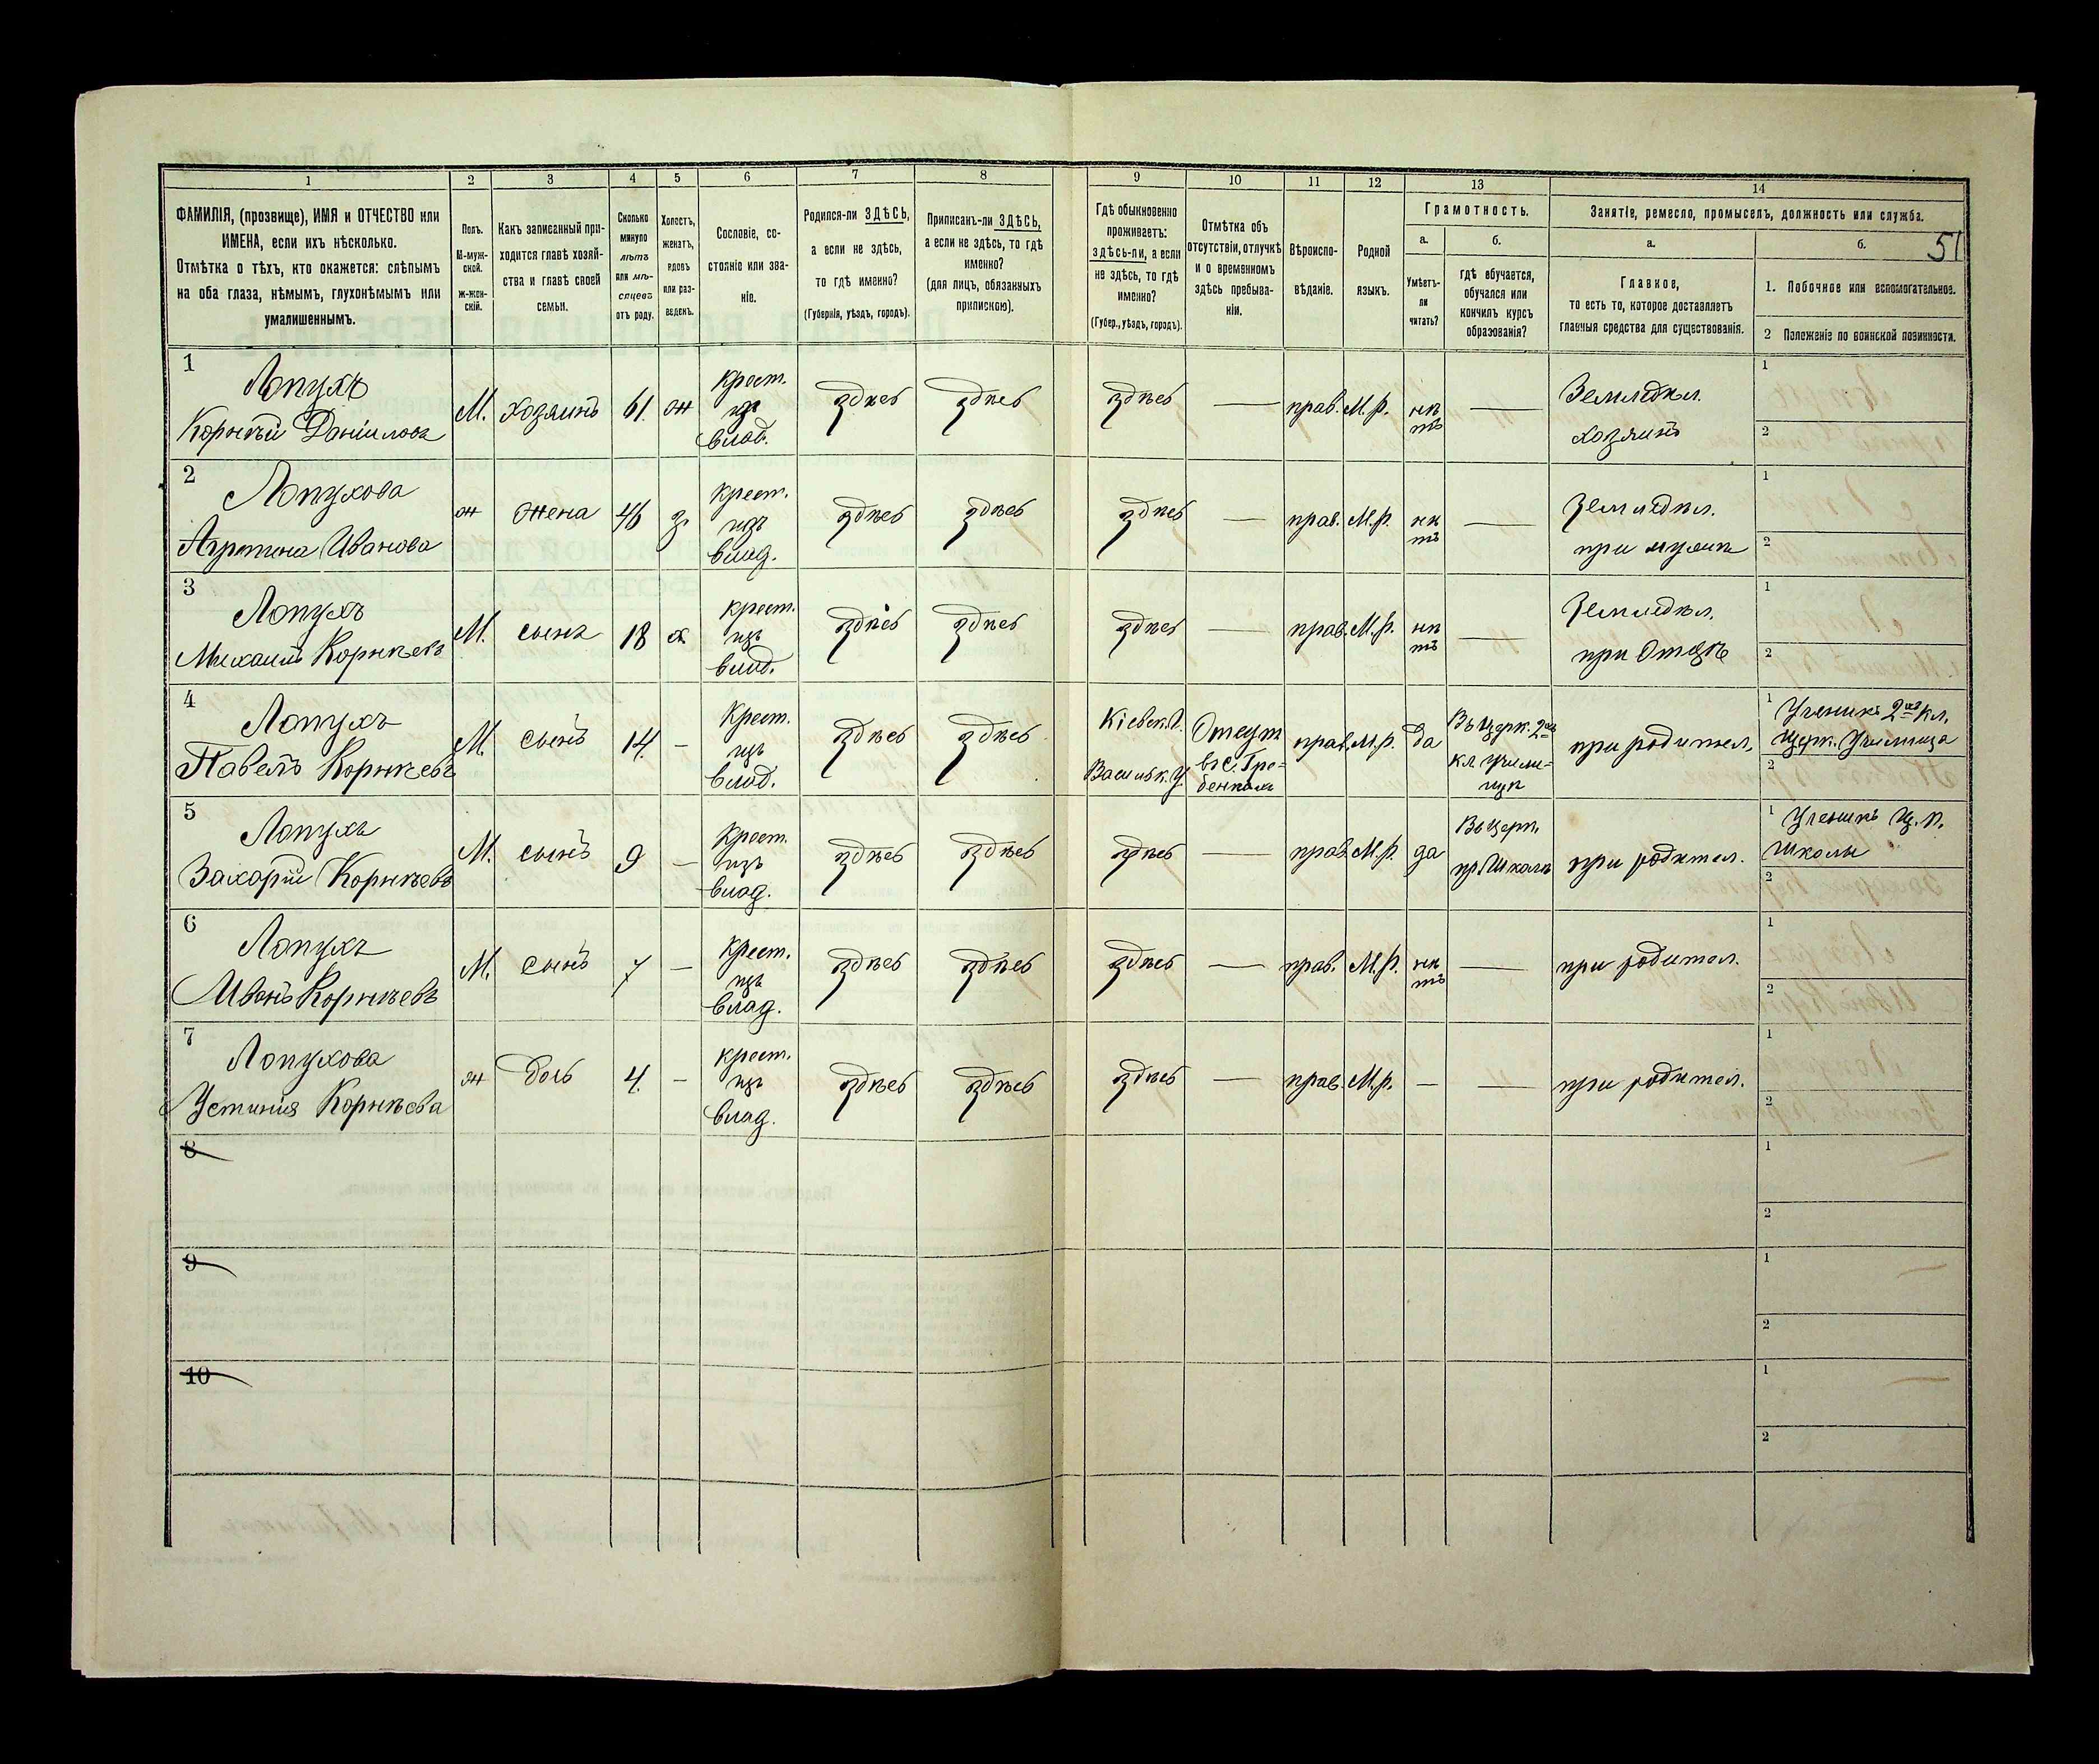 51
1 2 3 4 5 6 7 8 9 10 11 12 13 14
ФАМИЛІЯ, (прозвище), ИМЯ и ОТЧЕСТВО или
ИМЕНА, если ихъ нѣсколько.
Отмѣтка о тѣхъ, кто окажется: слѣпымъ
на оба глаза, нѣмымъ, глухонѣмымъ или
умалишеннымъ.
Полъ.
М-муж-
ской.
ж-жен-
скій.
Какъ записанный при-
ходится главѣ хозяй-
ства и главѣ своей
семьи.
Сколько
минуло
лѣтъ
или мѣ-
сяцевъ
отъ роду.
Холостъ,
женатъ,
вдовъ
или раз-
веденъ.
Сословіе, со-
стояніе или зва-
ніе.
Родился-ли ЗДѢСЬ,
а если не здѣсь,
то гдѣ именно?
(Губернія, уѣздъ, городъ).
Приписанъ-ли ЗДѢСЬ,
а если не здѣсь, то гдѣ
именно?
(для лицъ, обязанныхъ
припискою).
Гдѣ обыкновенно
проживаетъ:
здѣсь-ли, а если
не здѣсь, то гдѣ
именно?
(Губер., уѣздъ, городъ).
Отмѣтка объ
отсутствіи, отлучкѣ
и о временномъ
здѣсь пребыва-
ніи.
Вѣроиспо-
вѣданіе.
Родной
языкъ.
Грамотность.
а.
Умѣетъ-
ли
читать?
б.
гдѣ обучается,
обучался или
кончилъ курсъ
образованія?
Занятіе, ремесло, промыселъ, должность или служба.
а.
Главное,
то есть то, которое доставляетъ
главныя средства для существованія.
б.
1. Побочное или вспомогательное.
2 Положеніе по воинской повинности.
1
Лопухъ
Корнѣй Даніиловъ
М.
хозяинъ
61.
ж
Крест.
изъ
влад.
здѣсь
здѣсь
здѣсь
—
прав.
М.р.
нѣ
тъ
—
Земледѣл.
хозяинъ
1
2
2
Лопухова
Агрипина Иванова
ж
жена
46
з.
Крест.
изъ
влад.
здѣсь
здѣсь
здѣсь
—
прав.
М.р.
нѣ
тъ
—
Земледѣл.
при мужѣ
1
2
3
Лопухъ
Михаилъ Корнѣевъ
М.
сынъ
18
х
Крест.
изъ
влад.
здѣсь
здѣсь
здѣсь
—
прав.
М.р.
нѣ
тъ
—
Земледѣл.
при Отцѣ
1
2
4
Лопухъ
Павелъ Корнѣевъ
М.
сынъ
14.
—
Крест.
изъ
влад.
здѣсь
здѣсь
Кіевск. Г.
Васильк. у.
Отсут
въ с. Гре-
бенкахъ
прав.
М.р.
да
Въ церк. 2хъ
кл. учили-
щѣ
при родител.
1 Ученикъ 2хъ кл.
церк. Училища
2
5
Лопухъ
Захарій Корнѣевъ
М.
сынъ
9
—
Крест.
изъ
влад.
здѣсь
здѣсь
здѣсь
—
прав.
М.р.
да
Въ церк.
пр. Школѣ
при родител.
1 Ученикъ Ц. П.
Школы
2
6
Лопухъ
Иванъ Корнѣевъ
М.
сынъ
7
—
Крест.
изъ
влад.
здѣсь
здѣсь
здѣсь
—
прав.
М.р.
нѣ
тъ
—
при родител.
1
2
7
Лопухова
Устинія Корнѣева
ж
дочь
4.
—
Крест.
изъ
влад.
здѣсь
здѣсь
здѣсь
—
прав.
М.р.
—
—
при родител.
1
2
8
1
2
9
1
2
10
1
2